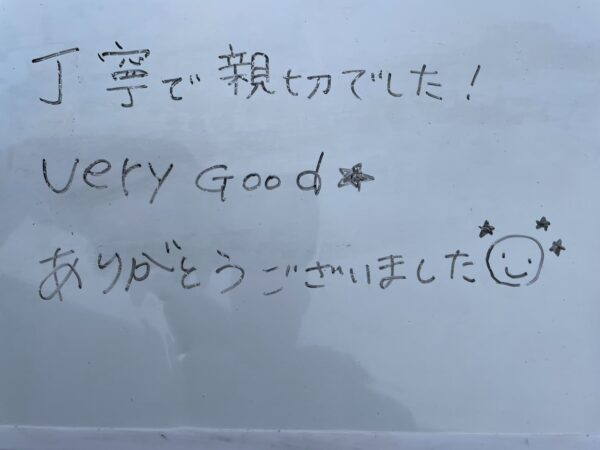 丁寧で親切でした!
Very Good★
ありがとうございました